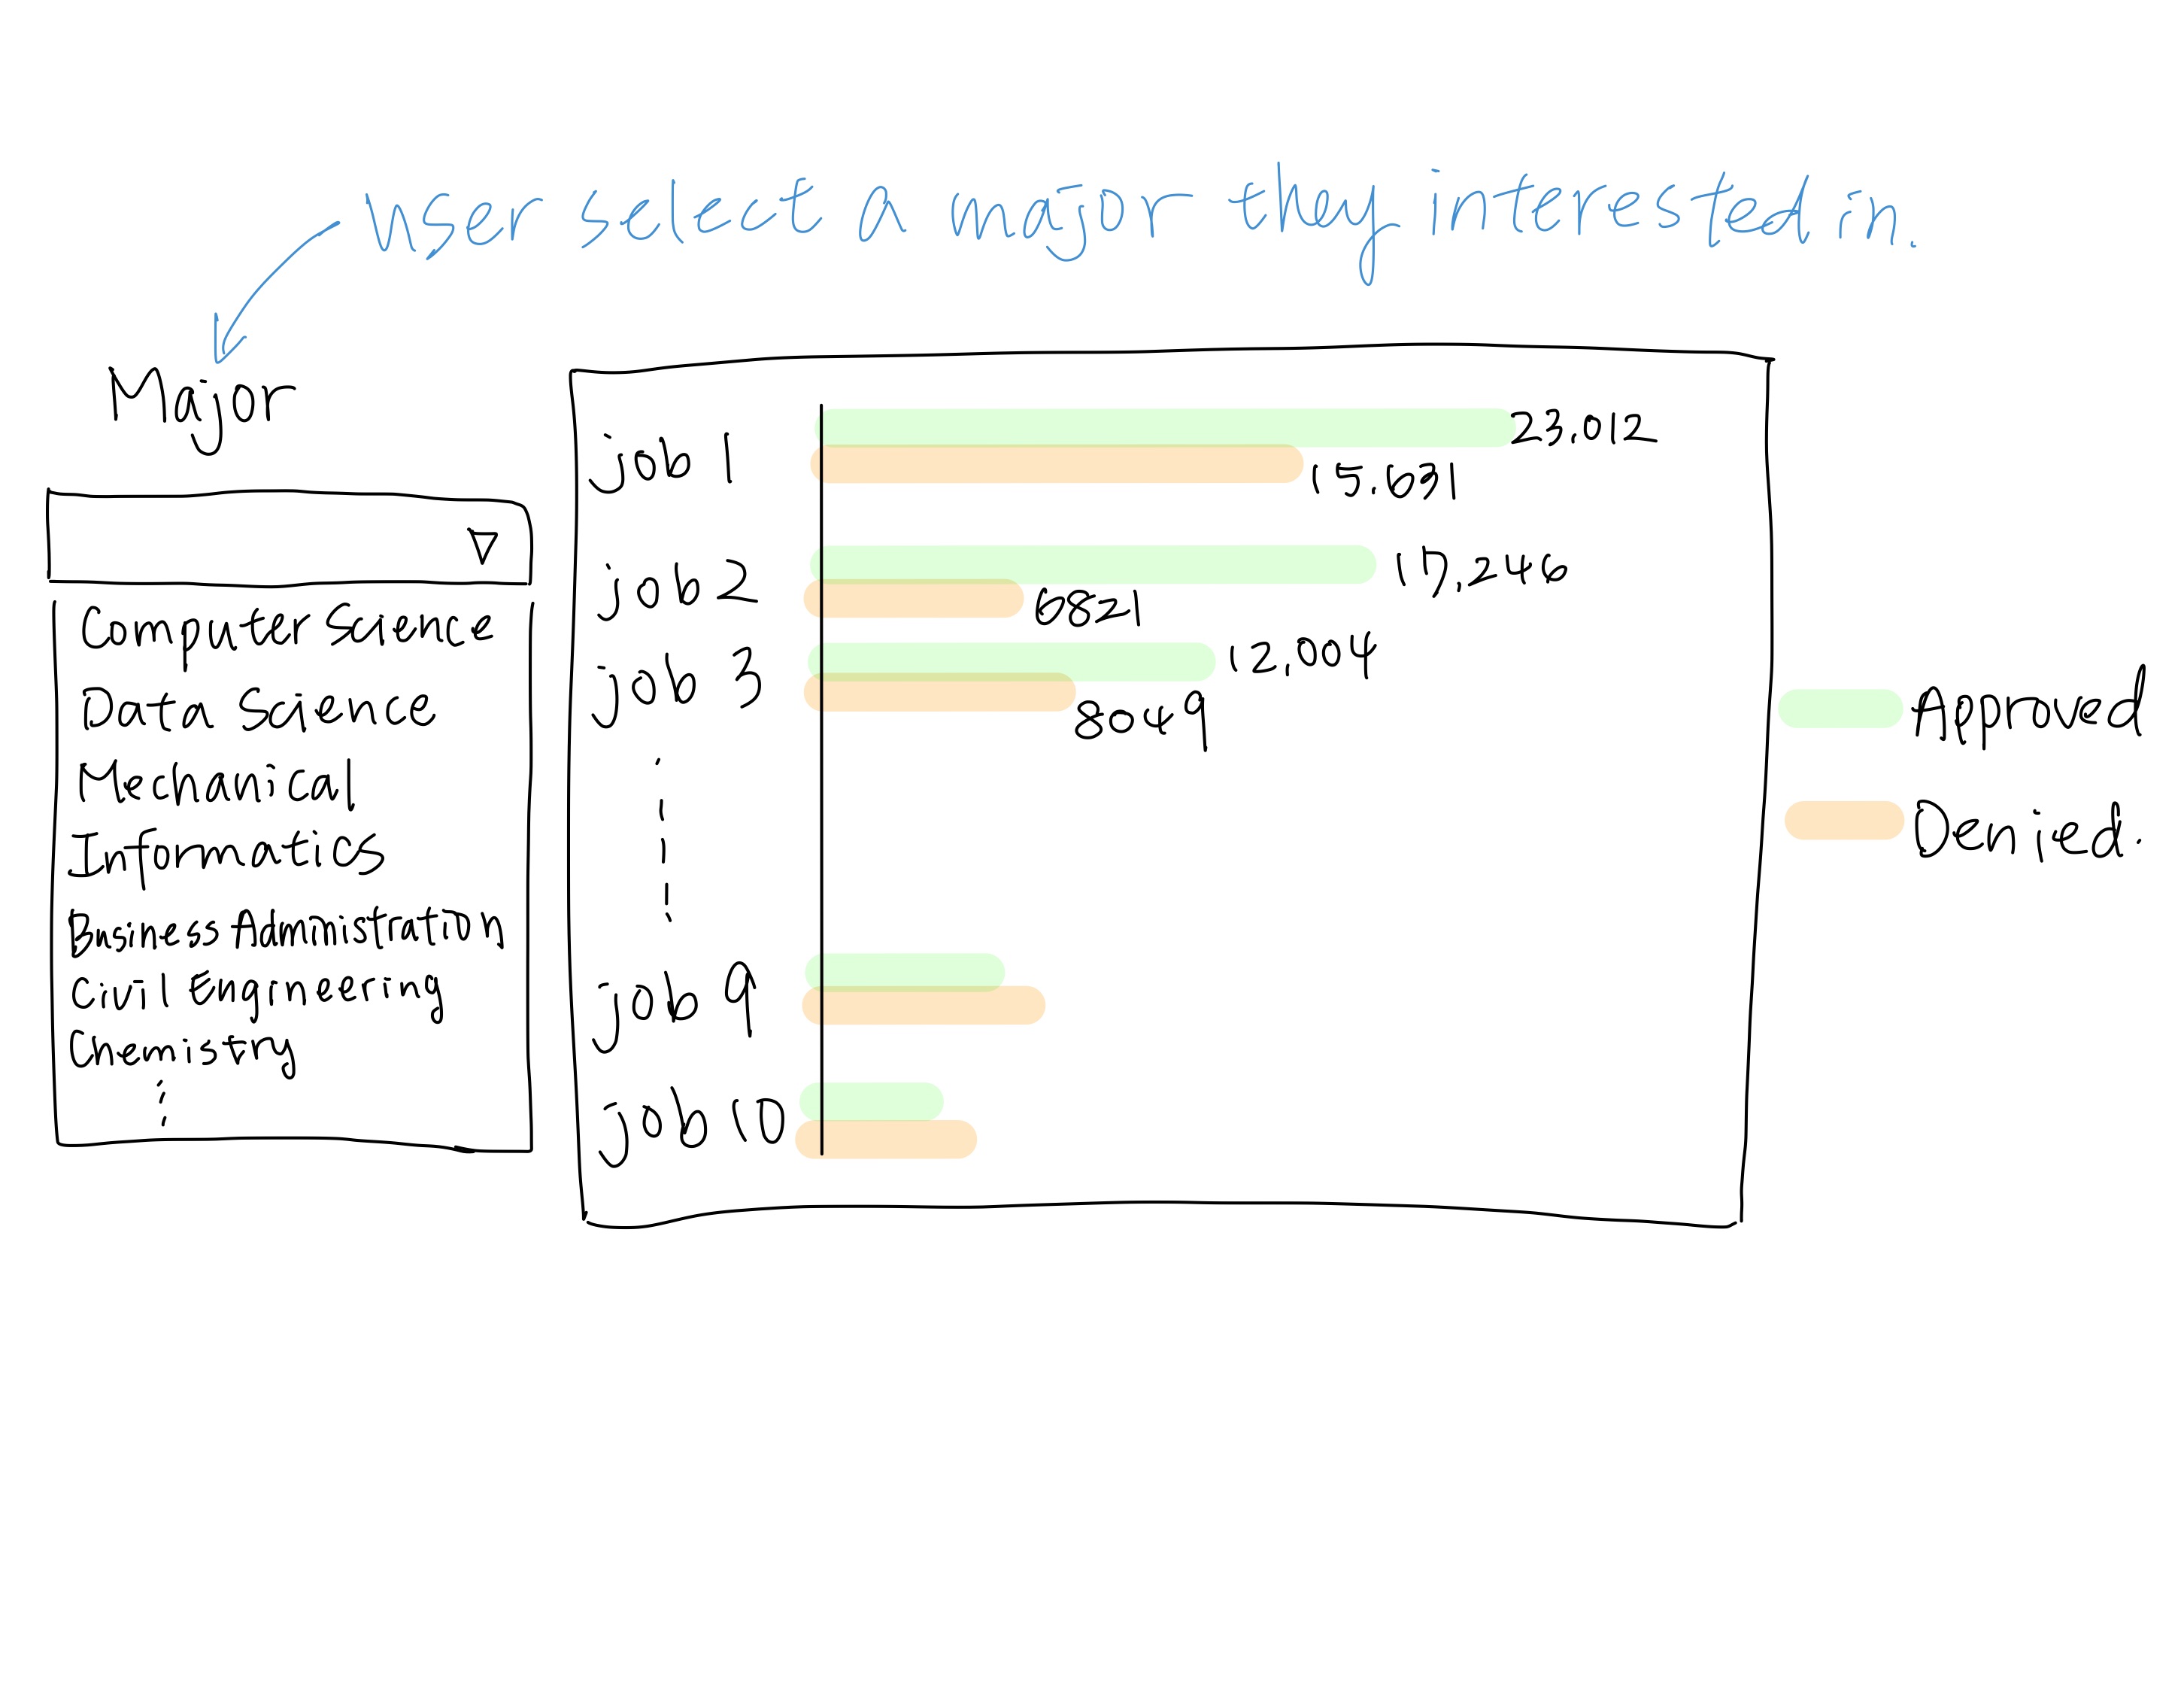 user select a major they interested in.
Major
Computer Science
Data Science.
Mechanical
Informatics
Business Administration
Civil Engineering
Chemistry
job 1
23.012
15.631
job 2
17,246
6821
job 3
12.004
8049
job 9
job 10
Approved
Denied.